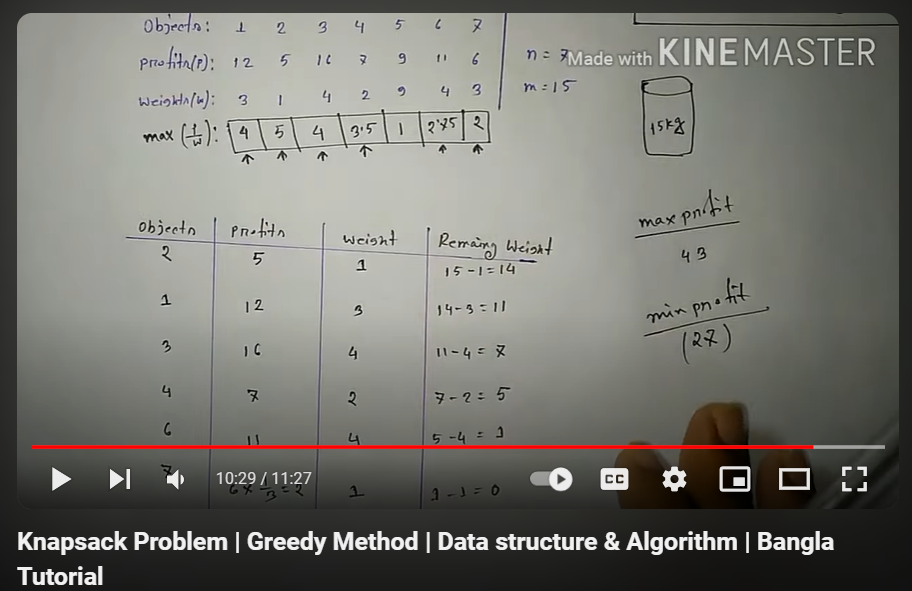 Objects: 1 2 3 4 5 6 7
Profits(P): 12 5 16 7 9 11 6
Weights(w): 3 1 4 2 9 4 3
n = 7
m = 15
Made with KINEMASTER
15kg
max (1/w): 4 5 4 3.5 1 2.75 2
Objects Profits Weight Remaing Weight
2 5 1 15-1=14
1 12 3 14-3=11
3 16 4 11-4=7
4 7 2 7-2=5
6 11 4 5-4=1
7 6×1/3=2 1 1-1=0
max profit
43
min profit
(27)
10:29 / 11:27
CC
Knapsack Problem | Greedy Method | Data structure & Algorithm | Bangla
Tutorial